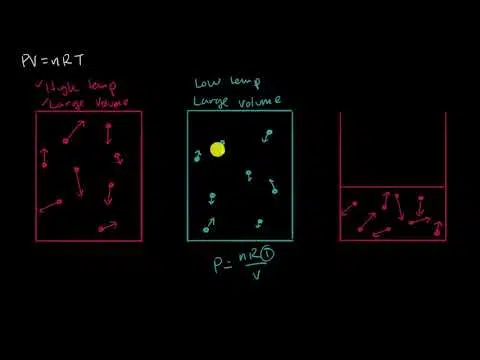 PV=nRT
✓High temp
✓Large volume
Low temp
Large volume
P = nRT
V